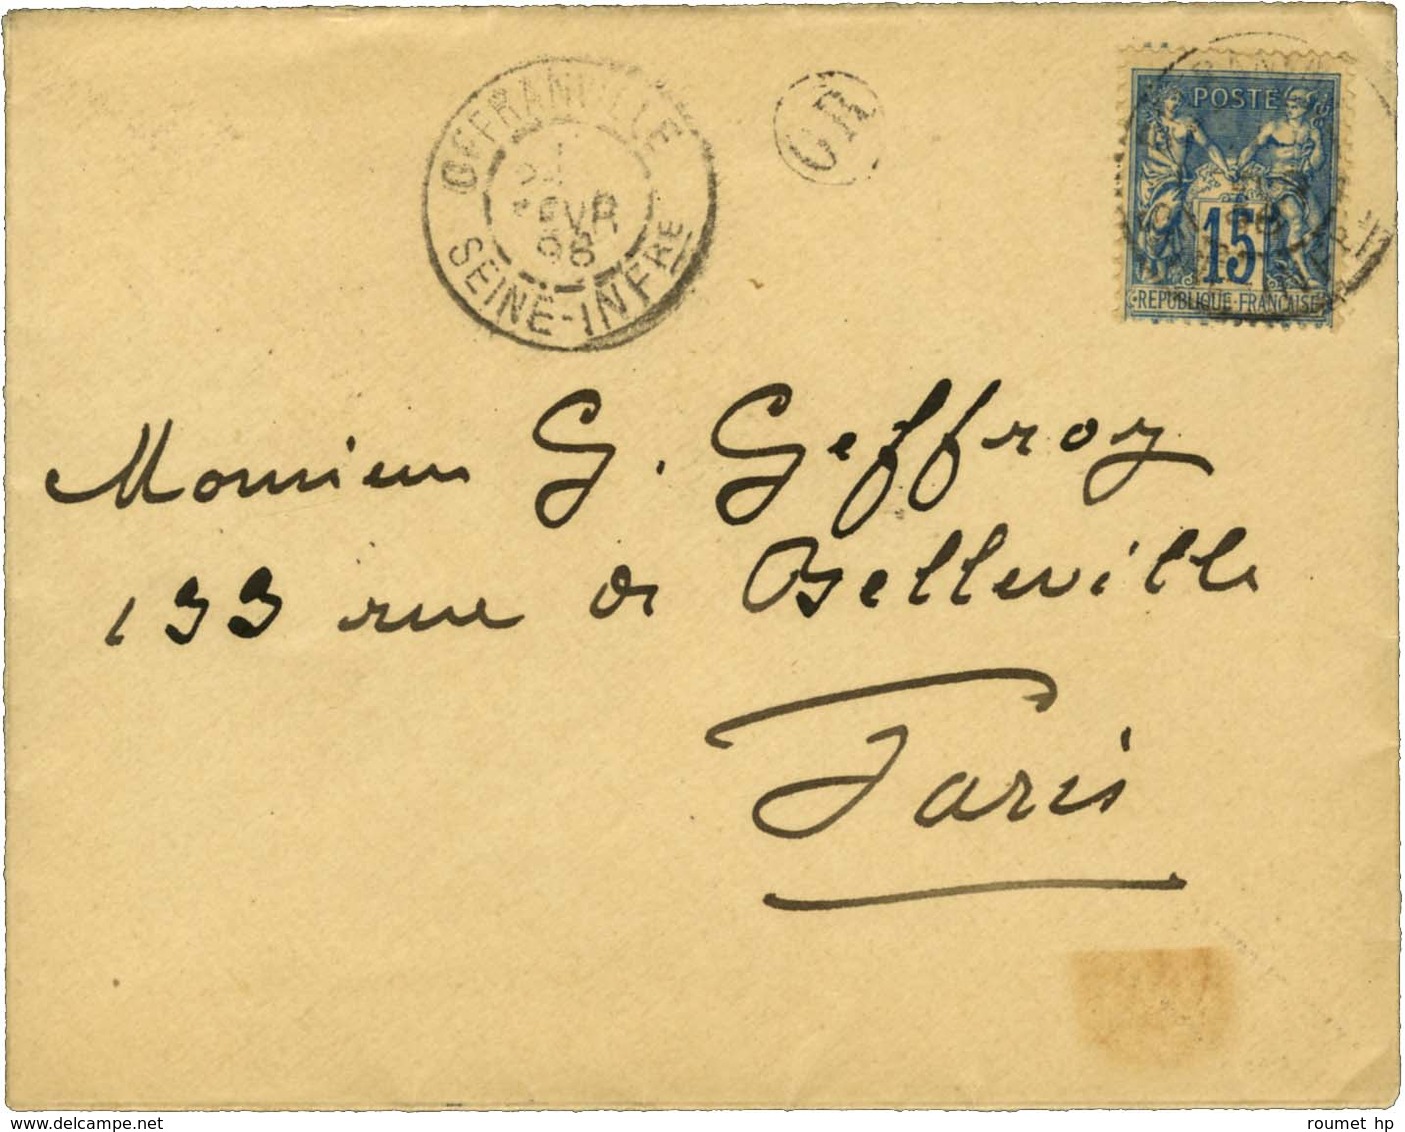 OFFRANVILLE
FEVR
96
SEINE-INFRE
OR
POSTE
15
REPUBLIQUE FRANÇAISE
Monsieur G. Geffroy
133 rue de Belleville
Paris
roumet hp
www.delcampe.net